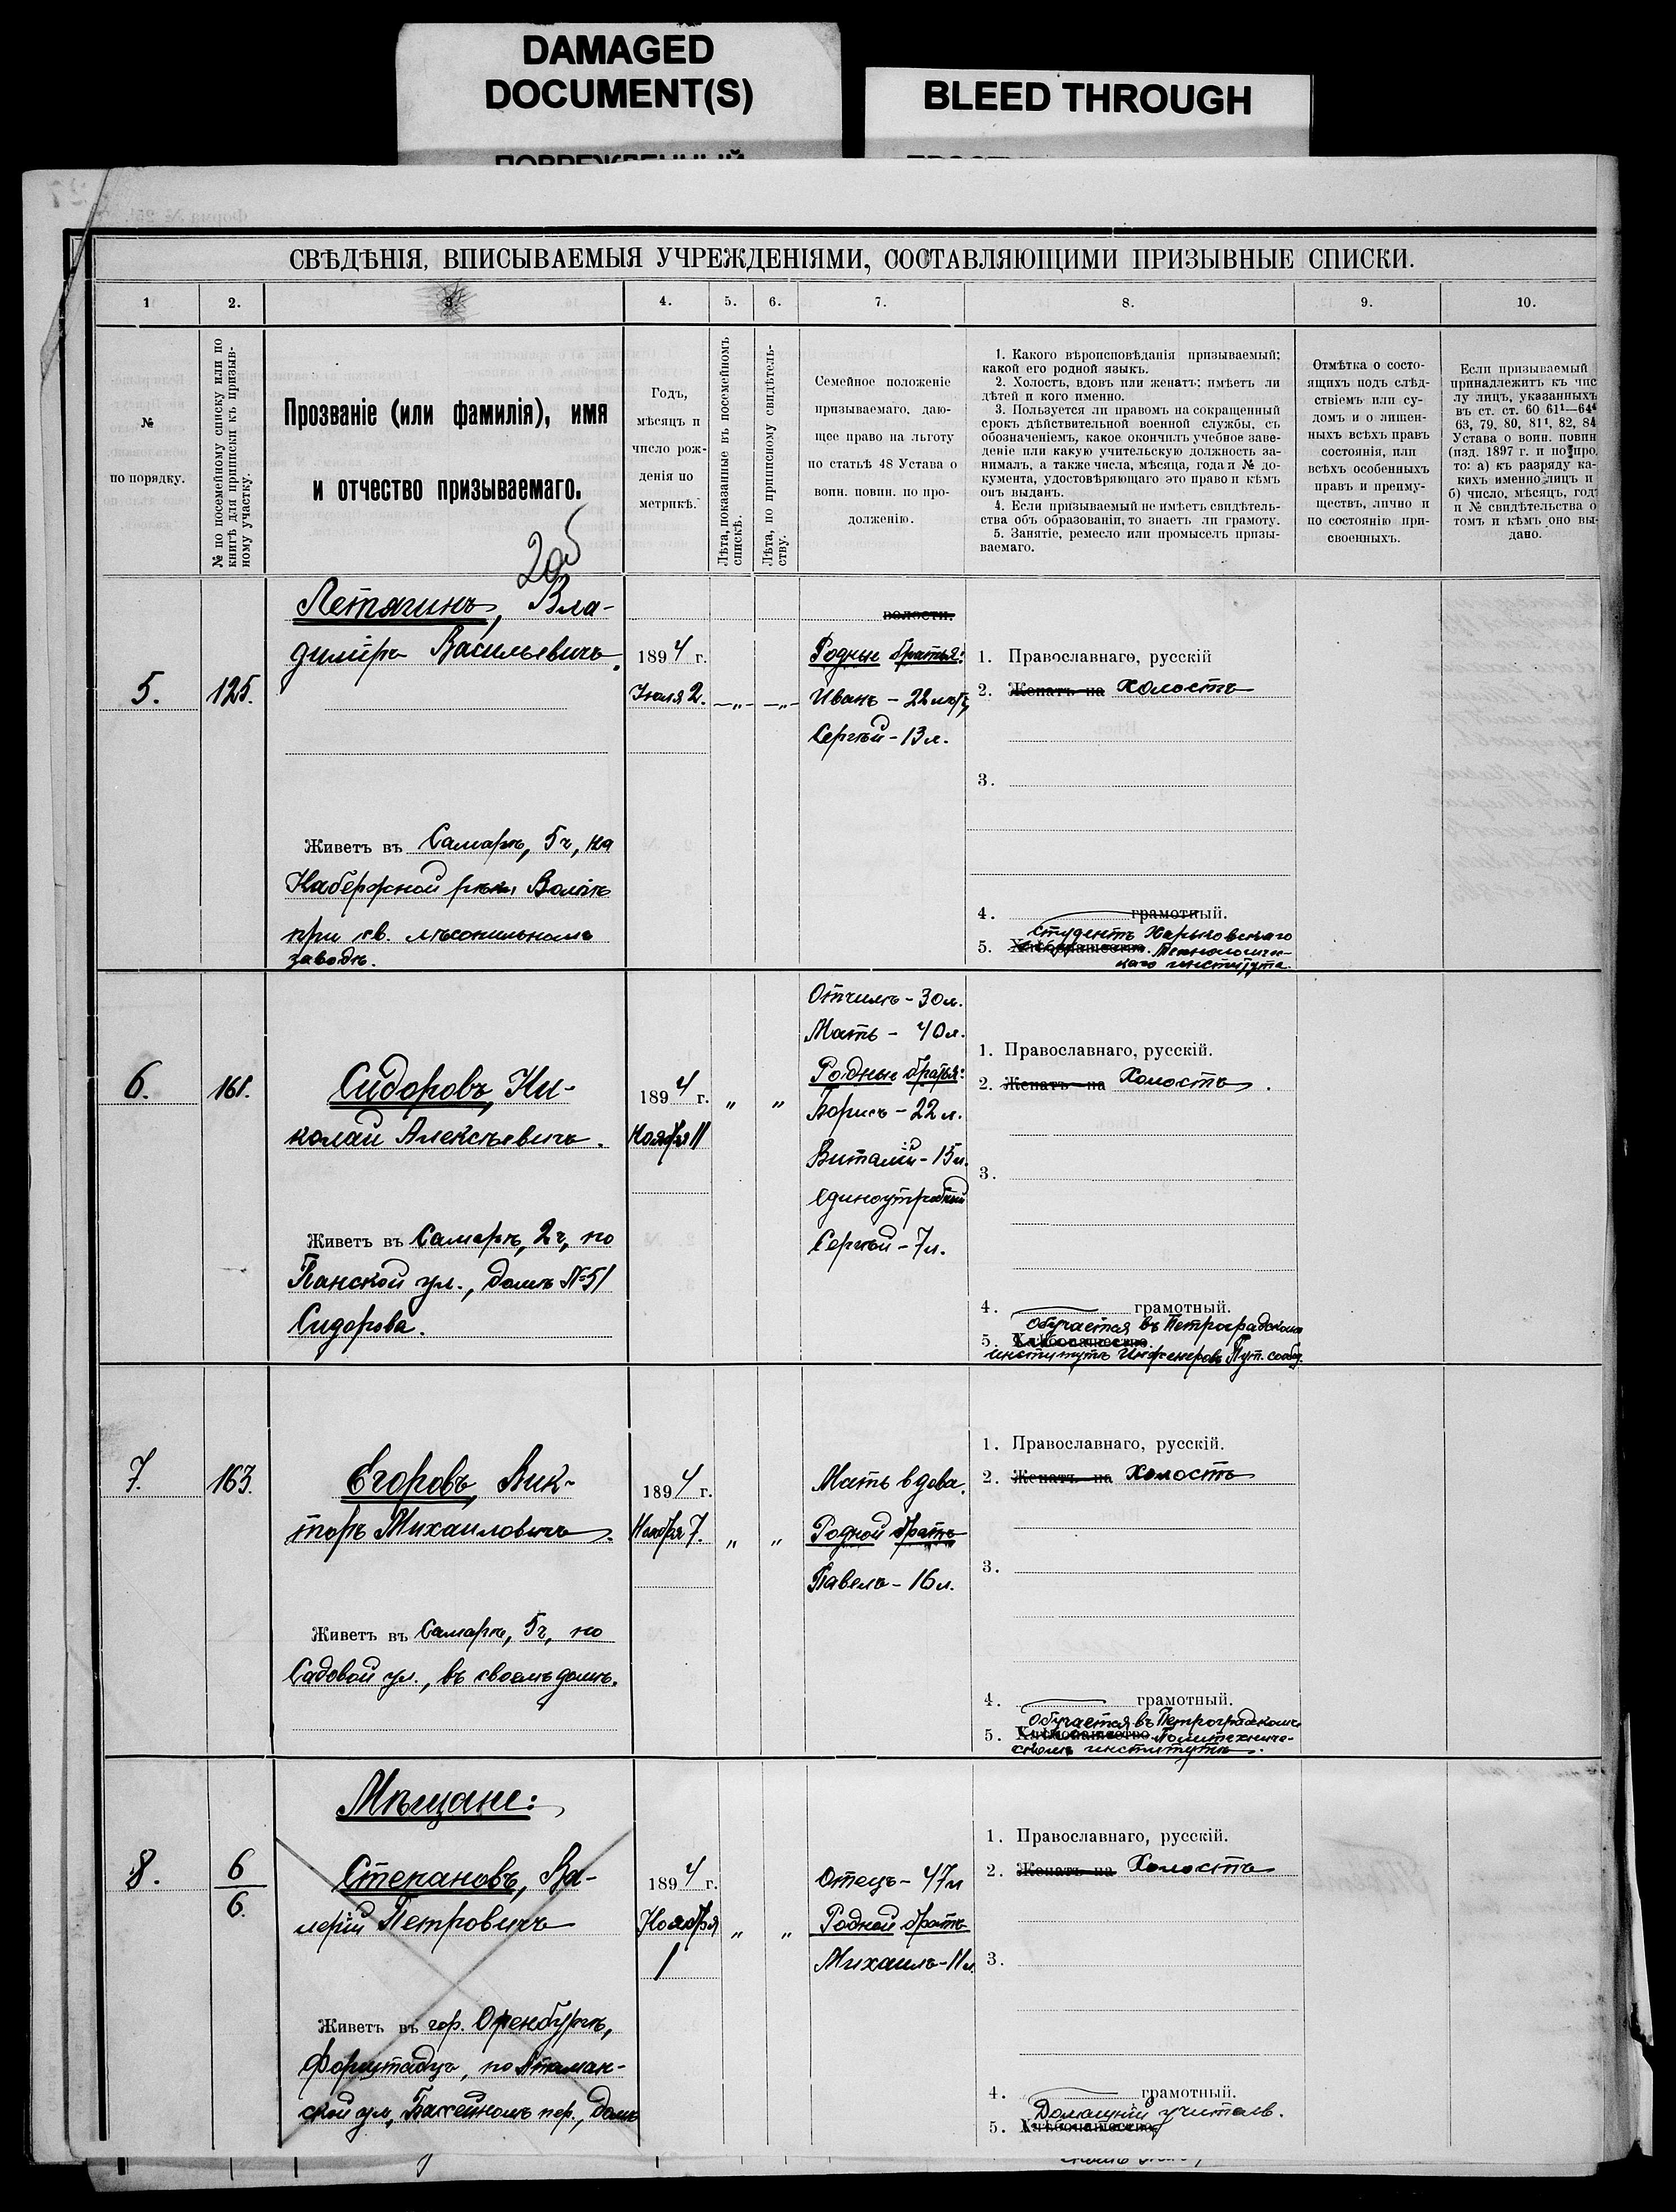 DAMAGED
DOCUMENT(S)
BLEED THROUGH
СВѢДѢНІЯ, ВПИСЫВАЕМЫЯ УЧРЕЖДЕНІЯМИ, СОСТАВЛЯЮЩИМИ ПРИЗЫВНЫЕ СПИСКИ.
1 2. 3. 4. 5. 6. 7. 8. 9. 10.
№
по порядку.
№ по посемейному списку или по
книгѣ для приписки къ призыв-
ному участку.
Прозваніе (или фамилія), имя
и отчество призываемаго.
Годъ,
мѣсяцъ и
число рож-
денія по
метрикѣ.
Лѣта, показанные въ посемейномъ
спискѣ.
Лѣта, по приписному свидѣтель-
ству.
Семейное положеніе
призываемаго, даю-
щее право на льготу
по статьѣ 48 Устава о
воин. повин. по про-
долженію.
1. Какого вѣроисповѣданія призываемый;
какой его родной языкъ.
2. Холостъ, вдовъ или женатъ; имѣетъ ли
дѣтей и кого именно.
3. Пользуется ли правомъ на сокращенный
срокъ дѣйствительной военной службы, съ
обозначеніемъ, какое окончилъ учебное заве-
деніе или какую учительскую должность за-
нималъ, а также числа, мѣсяца, года и № до-
кумента, удостовѣряющаго это право и кѣмъ
онъ выданъ.
4. Если призываемый не имѣетъ свидѣтель-
ства объ образованіи, то знаетъ ли грамоту.
5. Занятіе, ремесло или промыселъ призы-
ваемаго.
Отмѣтка о состо-
ящихъ подъ слѣд-
ствіемъ или су-
домъ и о лишен-
ныхъ всѣхъ правъ
состоянія, или
всѣхъ особенныхъ
правъ и преиму-
ществъ, лично и
по состоянію при-
своенныхъ.
Если призываемый
принадлежитъ къ чис
лу лицъ, указанныхъ
въ ст. ст. 60 61¹—64⁴
63, 79, 80, 81¹, 82, 84
Устава о воин. повин
(изд. 1897 г. и по про.
то: а) къ разряду ка-
кихъ именно лицъ и
б) число, мѣсяцъ, годъ
и № свидѣтельства о
томъ и кѣмъ оно вы-
дано.
5.
125.
Летягинъ, Вла-
диміръ Васильевичъ.
Живетъ въ Самарѣ, 5ч, на
Набережной рѣки Волги
при кв. лѣсопильномъ
заводѣ.
1894 г.
Іюля 2.
волости.
Родные братья:
Иванъ - 22 лѣтъ,
Сергѣй - 13 л.
1. Православнаго, русскій
2. Женатъ на Холостъ
3.
4. грамотный.
студентъ Харьковскаго
5. Хлѣбопашество. Технологичес-
каго института.
6.
161.
Сидоровъ, Ни-
колай Алексѣевичъ.
Живетъ въ Самарѣ, 2ч, по
Панской ул., домъ №51
Сидорова.
1894 г.
Ноября 11
Отчимъ - 30 л.
Мать - 40 л.
Родные братья:
Борисъ - 22 л.
Виталій - 15 л.
единоутробный
Сергѣй - 7 л.
1. Православнаго, русскій.
2. Женатъ на Холостъ.
3.
4. грамотный.
Обучается въ Петроградскомъ
5. Хлѣбопашество
институтѣ Инженеровъ Пут. сообщ.
7.
163.
Егоровъ, Вик-
торъ Михаиловичъ.
Живетъ въ Самарѣ, 5ч, по
Садовой ул., въ своемъ домѣ.
1894 г.
Ноября 7.
Мать вдова.
Родной братъ
Павелъ - 16 л.
1. Православнаго, русскій.
2. Женатъ на Холостъ
3.
4. грамотный.
Обучается въ Петроградскомъ
5. Хлѣбопашество Политехниче-
скомъ институтѣ.
Мѣщане:
8.
6
6.
Степановъ, Ва-
лерій Петровичъ
Живетъ въ гор. Оренбургѣ,
Форштадтъ, по Атаман-
ской ул, пер., домъ
1894 г.
Ноября
1
Отецъ - 47 л
Родной братъ
Михаилъ - 11 л.
1. Православнаго, русскій.
2. Женатъ на Холостъ
3.
4. грамотный.
Домашній учитель.
5. Хлѣбопашество